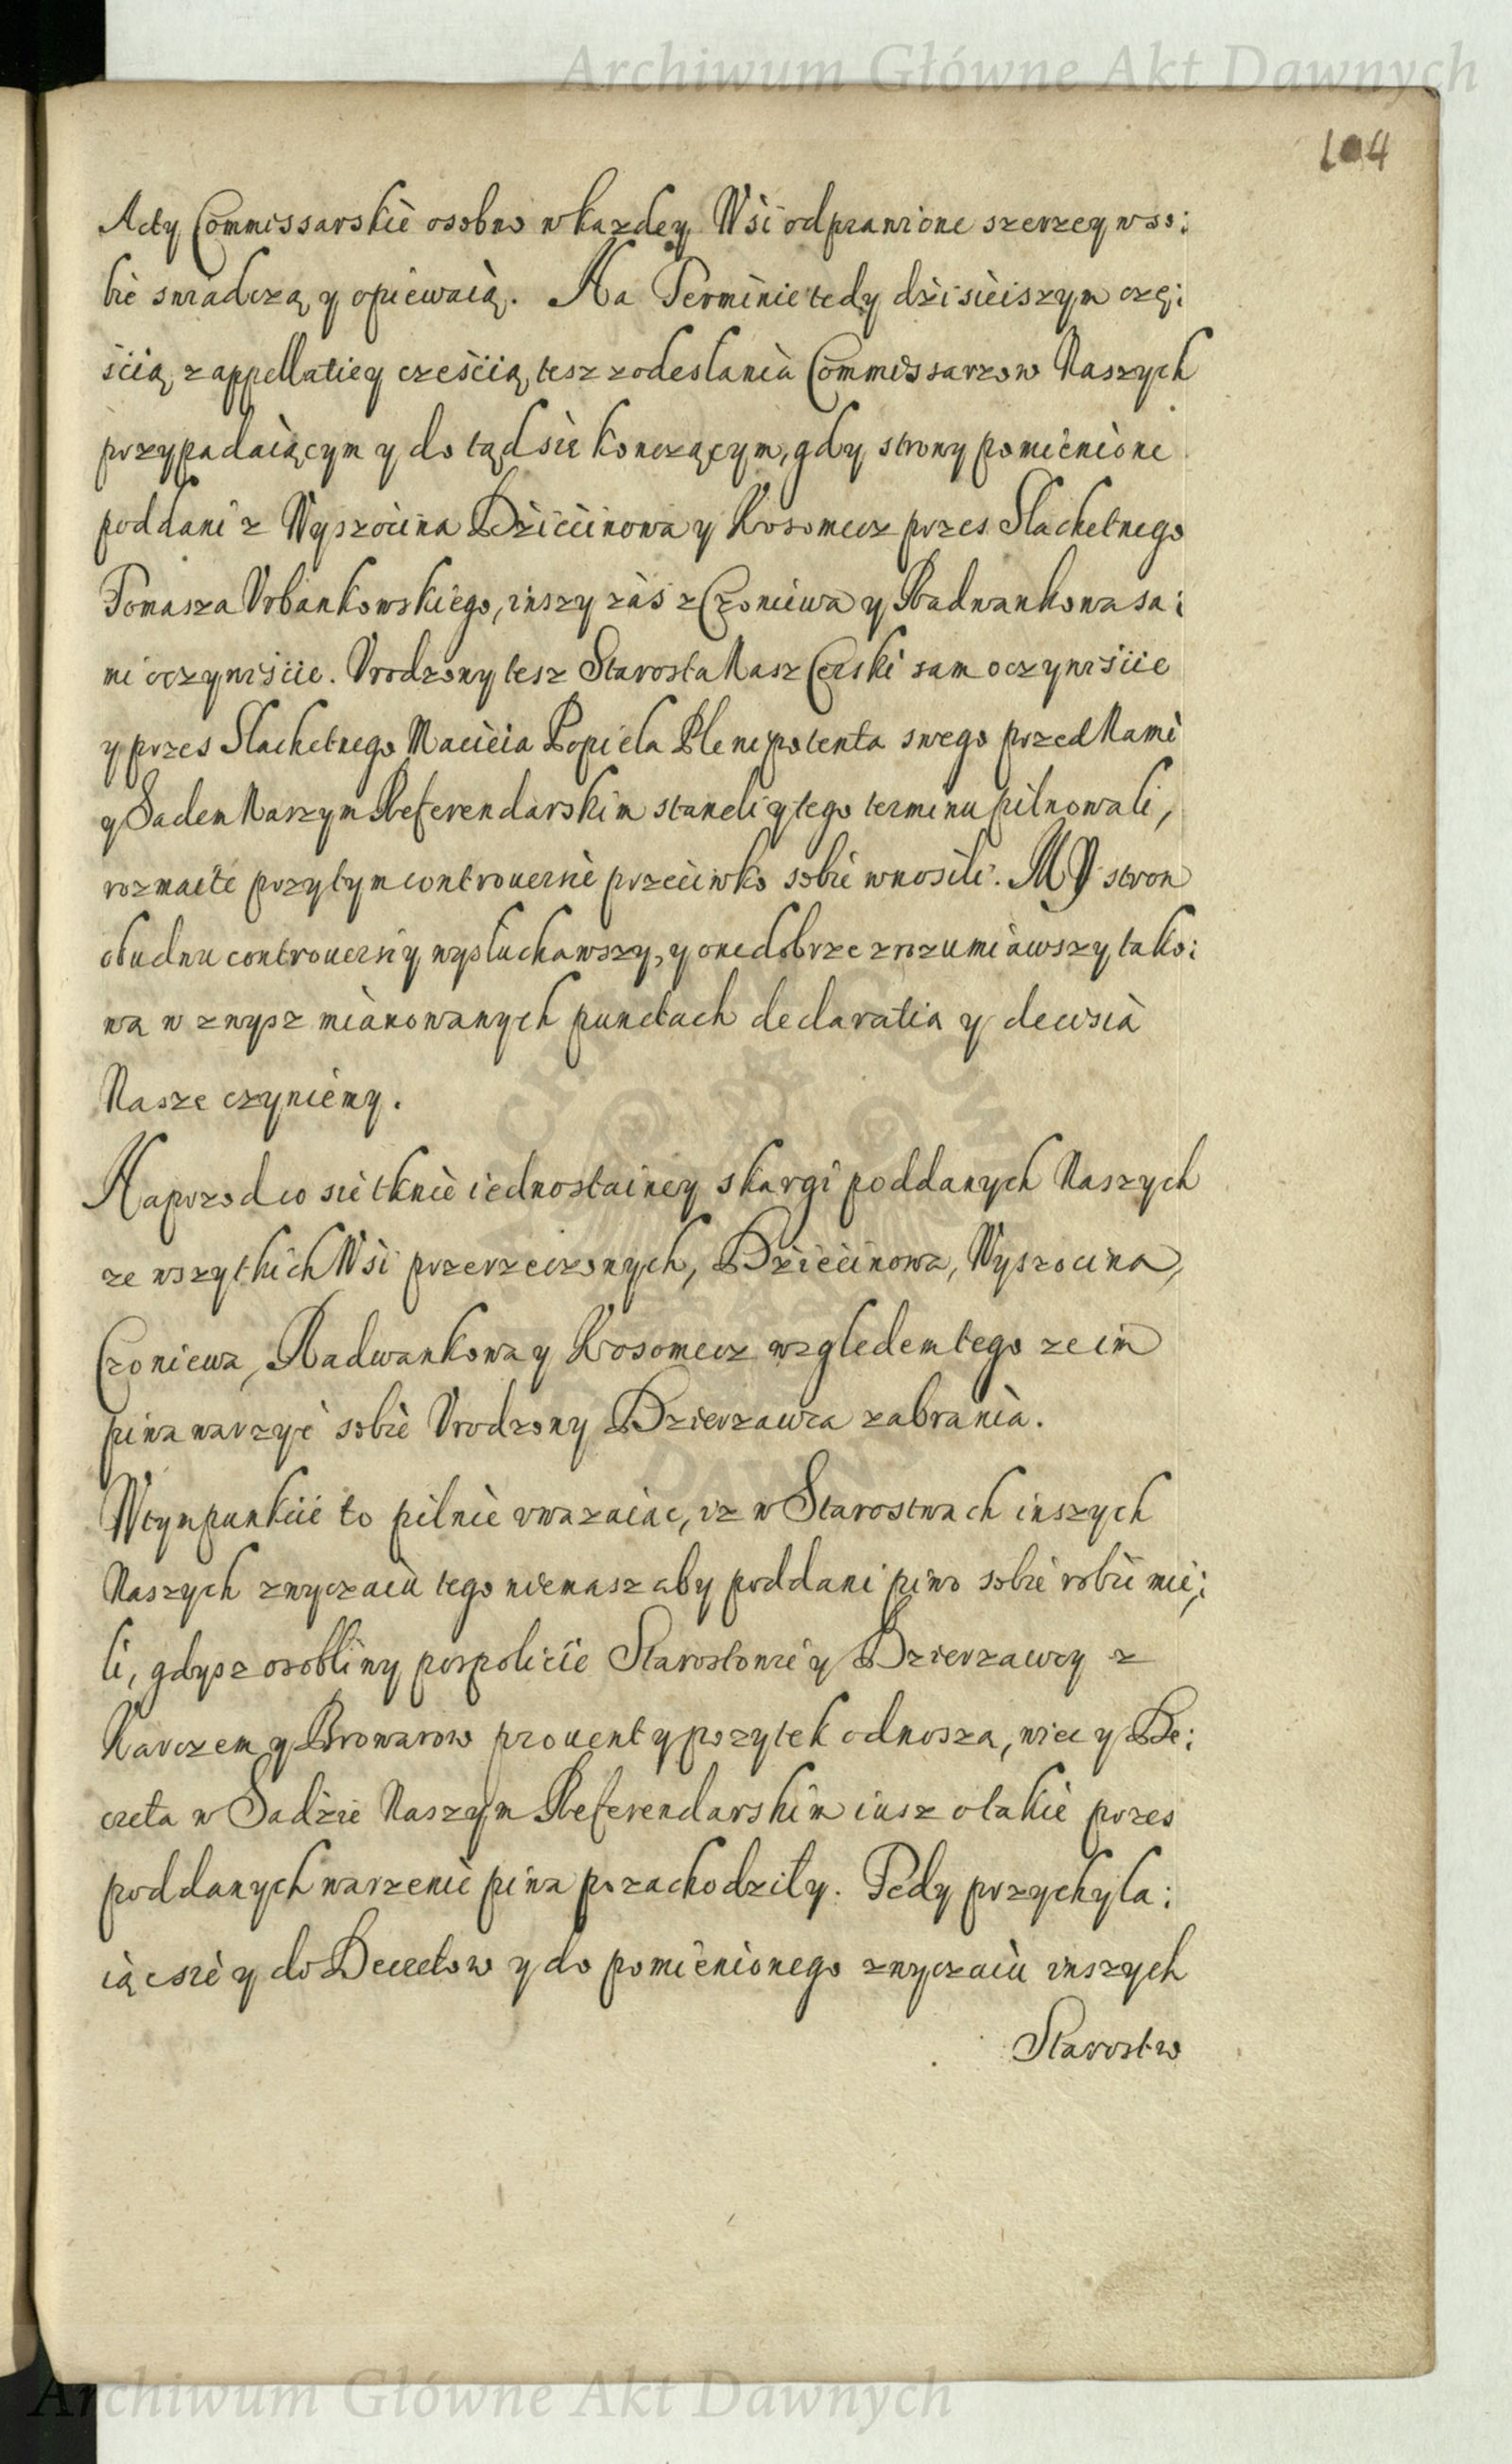 Archiwum Główne Akt Dawnych
104
Acty Commissarskie osobno w kazdey Wsi odprawione szerzey w so:
bie swiadczą y opiewaią. Na Terminie tedy dzisieiszym czę:
scią z appellatiey czescią tesz z odeslania Commissarzow Naszych
przypadaiącym y do tąd sie konczącym, gdy strony pomienione
poddani z Wyszocina Dziecinowa y Kosomecz przes Slachetnego
Tomasza Vrbankowskiego, inszy zas z Czoniewa y Radwankowa sa:
mi oczywiscie. Vrodzony tesz Starosta Nasz Czerski sam oczywiscie
y przes Slachetnego Macieia Popiela Plenipotenta swego przed Nami
y Sadem Naszym Referendarskim staneli y tego terminu pilnowali,
rozmaite przytym controuersie przeciwko sobie wnosili. MY stron
obudwu controuersiy wysluchawszy, y one dobrze zrozumiawszy tako:
wa w zwysz mianowanych punctach declaratia y decisia
Nasze czyniemy.
Naprzod co sie tknie iednostainey skargi poddanych Naszych
ze wszytkich Wsi przerzeczonych, Dziecinowa, Wyszocina,
Czoniewa, Radwankowa y Kosomecz wzgledem tego ze im
piwa warzyć sobie Vrodzony Dzierzawca zabrania.
W tym punkcie to pilnie vwazaiac, iz w Starostwach inszych
Naszych zwyczaiu tego niemasz aby poddani piwo sobie robic mie:
li, gdysz osobliwy pospolicie Starostowie y Dzierzawcy z
Karczem y Browarow prouent y pozytek odnosza, wiec y De:
creta w Sadzie Naszym Referendarskim iusz o takie przes
poddanych warzenie piwa pozachodzily. Tedy przychyla:
iąc sie y do Decretow y do pomienionego zwyczaiu inszych
Starostw
Archiwum Główne Akt Dawnych